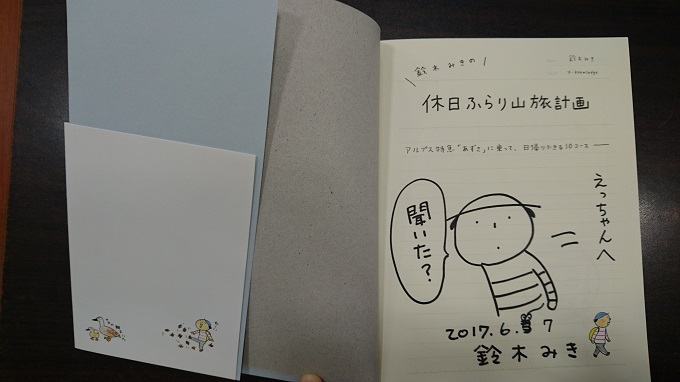 鈴木みきの
鈴木みき
休日ふらり山旅計画
アルプス特急「あずさ」に乗って、日帰りできる10コース
えっちゃんへ
聞いた?
2017.6. 7
鈴木みき